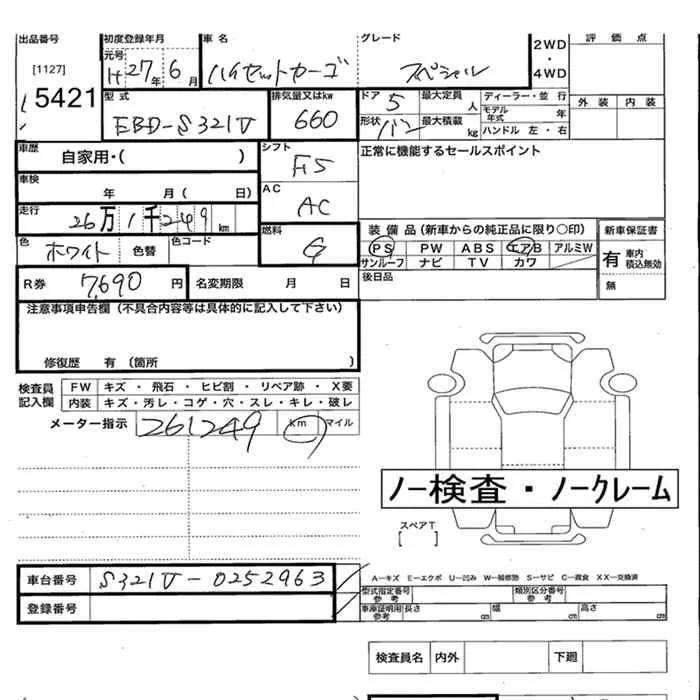 出品番号 初度登録年月 車名 グレード 2WD・4WD 評価点
[1127] 元号 H 27年 6月 ハイゼットカーゴ スペシャル
5421 型式 EBD-S321V 排気量又はkw 660 ドア 5 最大定員 人 ディーラー・並行 外装 内装
形状 バン 最大積載 kg モデル年式 年 ハンドル 左・右
車歴 自家用・( ) シフト F5 正常に機能するセールスポイント
車検 年 月( 日) AC AC
走行 26万1千249km 燃料 G 装備品(新車からの純正品に限り○印) 新車保証書
色 ホワイト 色替 色コード PS PW ABS エアB アルミW 有 車内積込無効
サンルーフ ナビ TV カワ
R券 7,690円 名変期限 月 日 後日品 無
注意事項申告欄(不具合内容等は具体的に記入して下さい)
修復歴 有(箇所
検査員記入欄 FW キズ・飛石・ヒビ割・リペア跡・X要
内装 キズ・汚レ・コゲ・穴・スレ・キレ・破レ
メーター指示 261249 km マイル
ノー検査・ノークレーム
スペアT
[ ]
車台番号 S321V-0252963 A-キズ E-エクボ U-凹み W-補修跡 S-サビ C-腐食 XX-交換済
登録番号 型式指定番号 参考 類別区分番号 参考
車庫証明用 参考 長さ cm 幅 cm 高さ cm
検査員名 内外 下廻